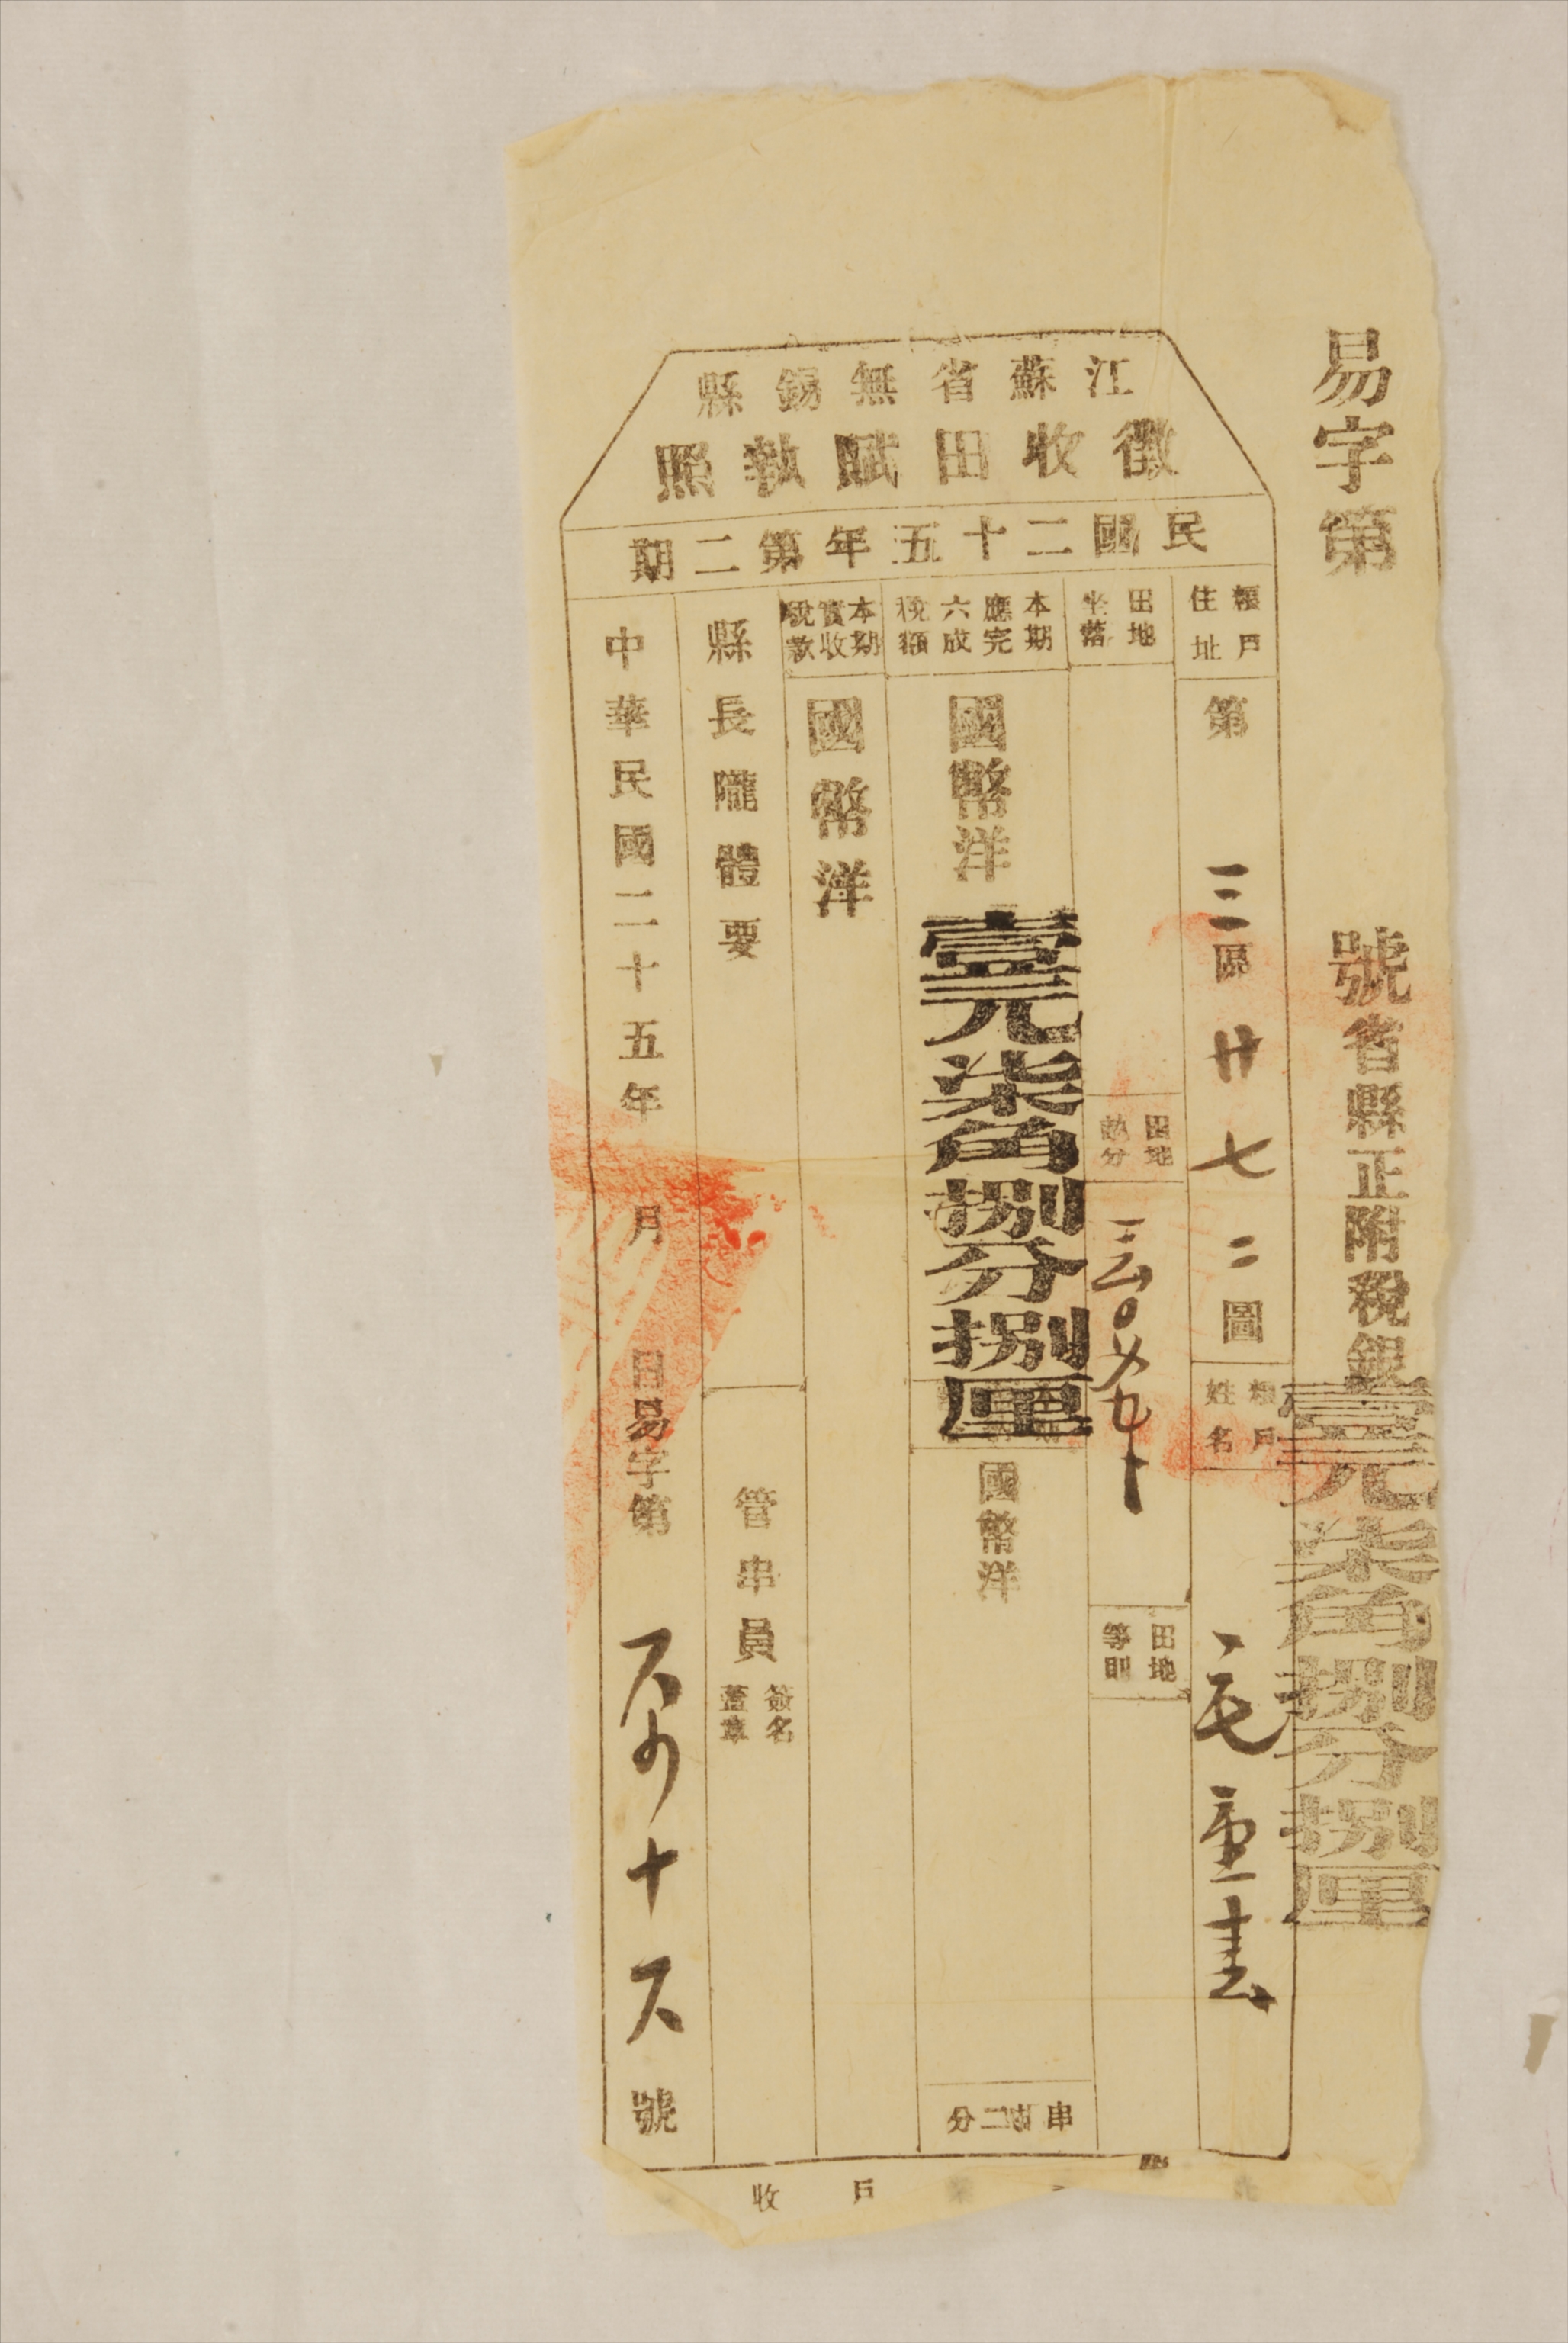 易字第　號省縣正附稅銀壹元柒角捌分捌厘
江蘇省無錫縣
徵收田賦執照
民國二十五年第二期
糧戶住址
第三區廿七二圖
糧戶姓名
毛
田地坐落
田地畝分
田地等則
本期應完六成稅額
國幣洋壹元柒角捌分捌厘
國幣洋
串票二分
本期實收稅款
國幣洋
縣長隴體要
管串員簽名蓋章
中華民國二十五年　月　日易字第　號
戶收